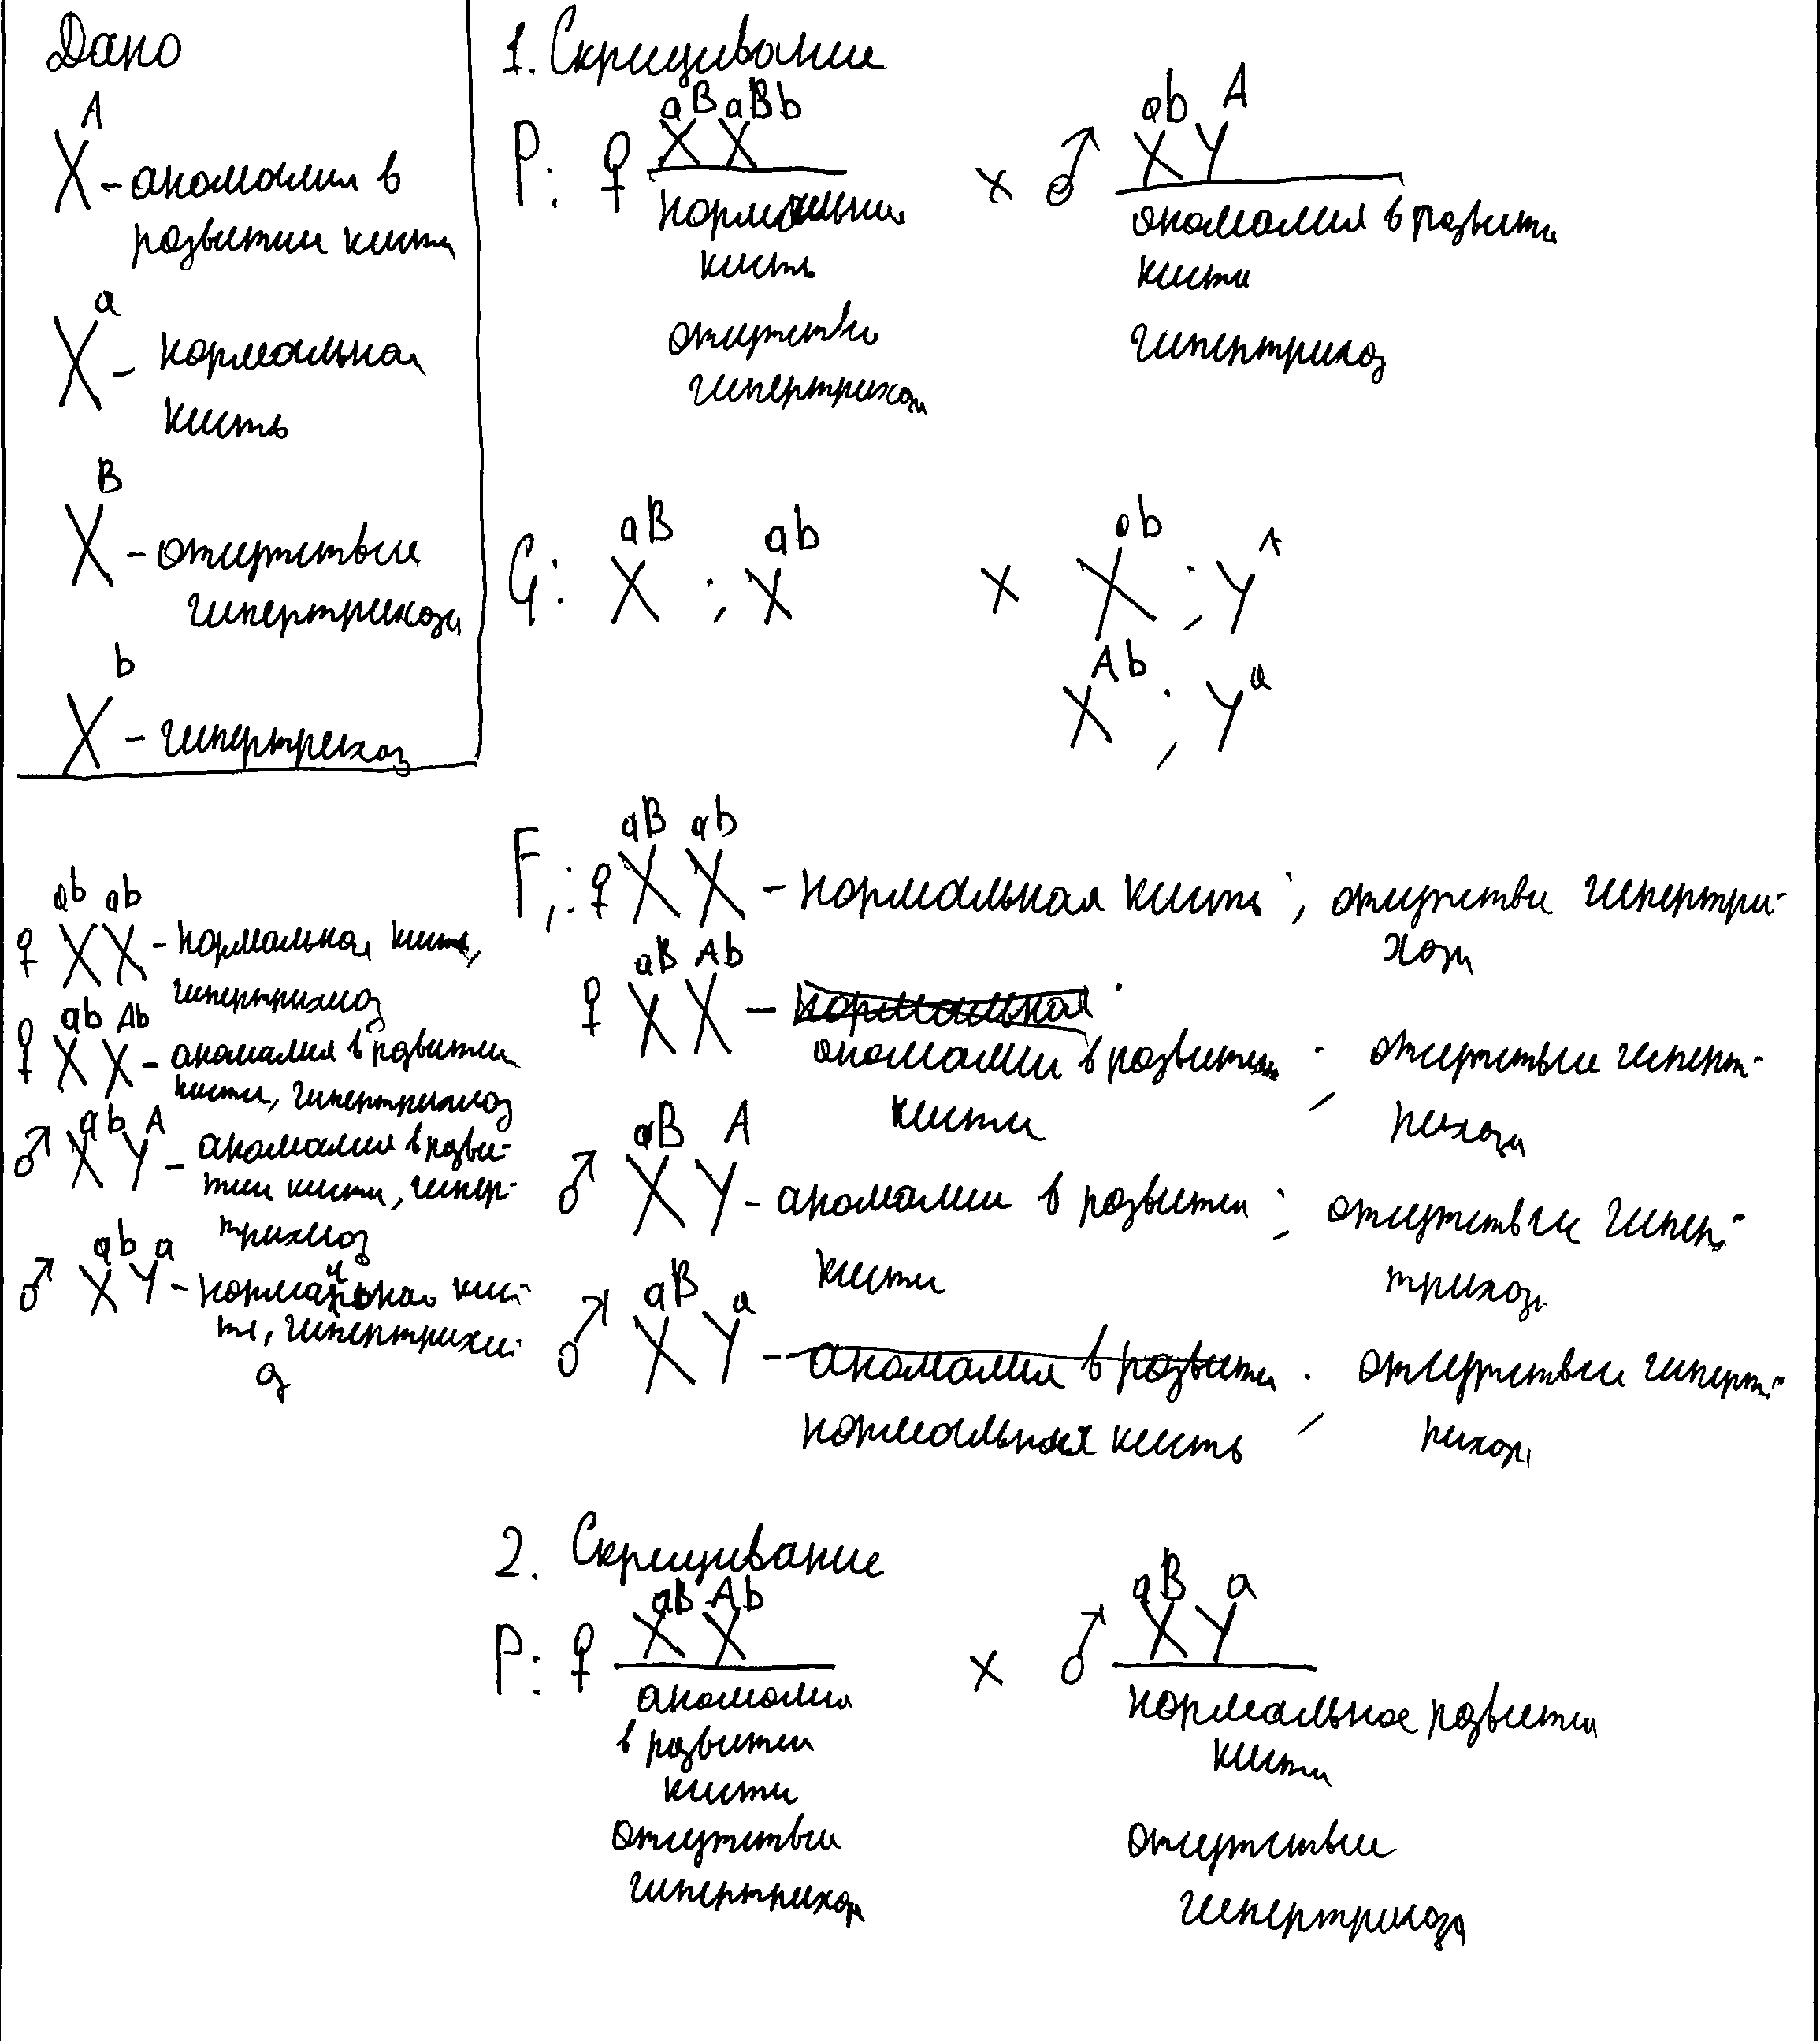 Дано
X^A - аномалия в
развитии кисти
X^a - нормальная
кисть
X^B - отсутствие
гипертрихоза
X^b - гипертрихоз
1. Скрещивание
P: ♀ X^aB X^aBb x ♂ X^ab Y^A
нормальная
кисть
отсутствие
гипертрихоза
аномалия в развити
кисти
гипертрихоз
G: X^aB ; X^ab x X^ab ; Y^A
X^Ab ; Y^a
F1: ♀ X^aB X^ab - нормальная кисть ; отсутстви гипертри-
хоза
♀ X^aB X^Ab - нормальная
аномалии в развитии ; отсутствие гиперт-
кисти рихоза
♂ X^aB Y^A - аномалии в развитии ; отсутствие гипер-
кисти трихоза
♂ X^aB Y^a - аномалия в развити ; отсутствие гиперт-
нормальная кисть рихоза
♀ X^ab X^ab - нормальная кисть,
гипертрихиоз
♀ X^ab X^Ab - аномалия в развитии
кисти, гипертрихиоз
♂ X^ab Y^A - аномалия в разви-
тии кисти, гипер-
трихиоз
♂ X^ab Y^a - нормальная кис-
ть, гипертрихи-
оз
2. Скрещивание
P: ♀ X^aB X^Ab x ♂ X^aB Y^a
аномалия
в развитии
кисти
отсутствии
гипертрихоза
нормальное развитии
кисти
отсутствие
гипертрихоза